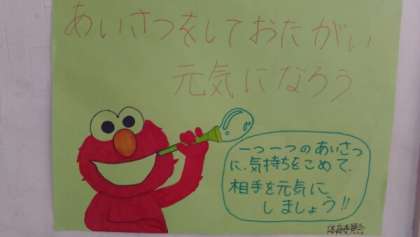 あいさつをしておたがい
元気になろう
一つ一つのあいさつ
に、気持ちをこめて、
相手を元気に
しましょう!!